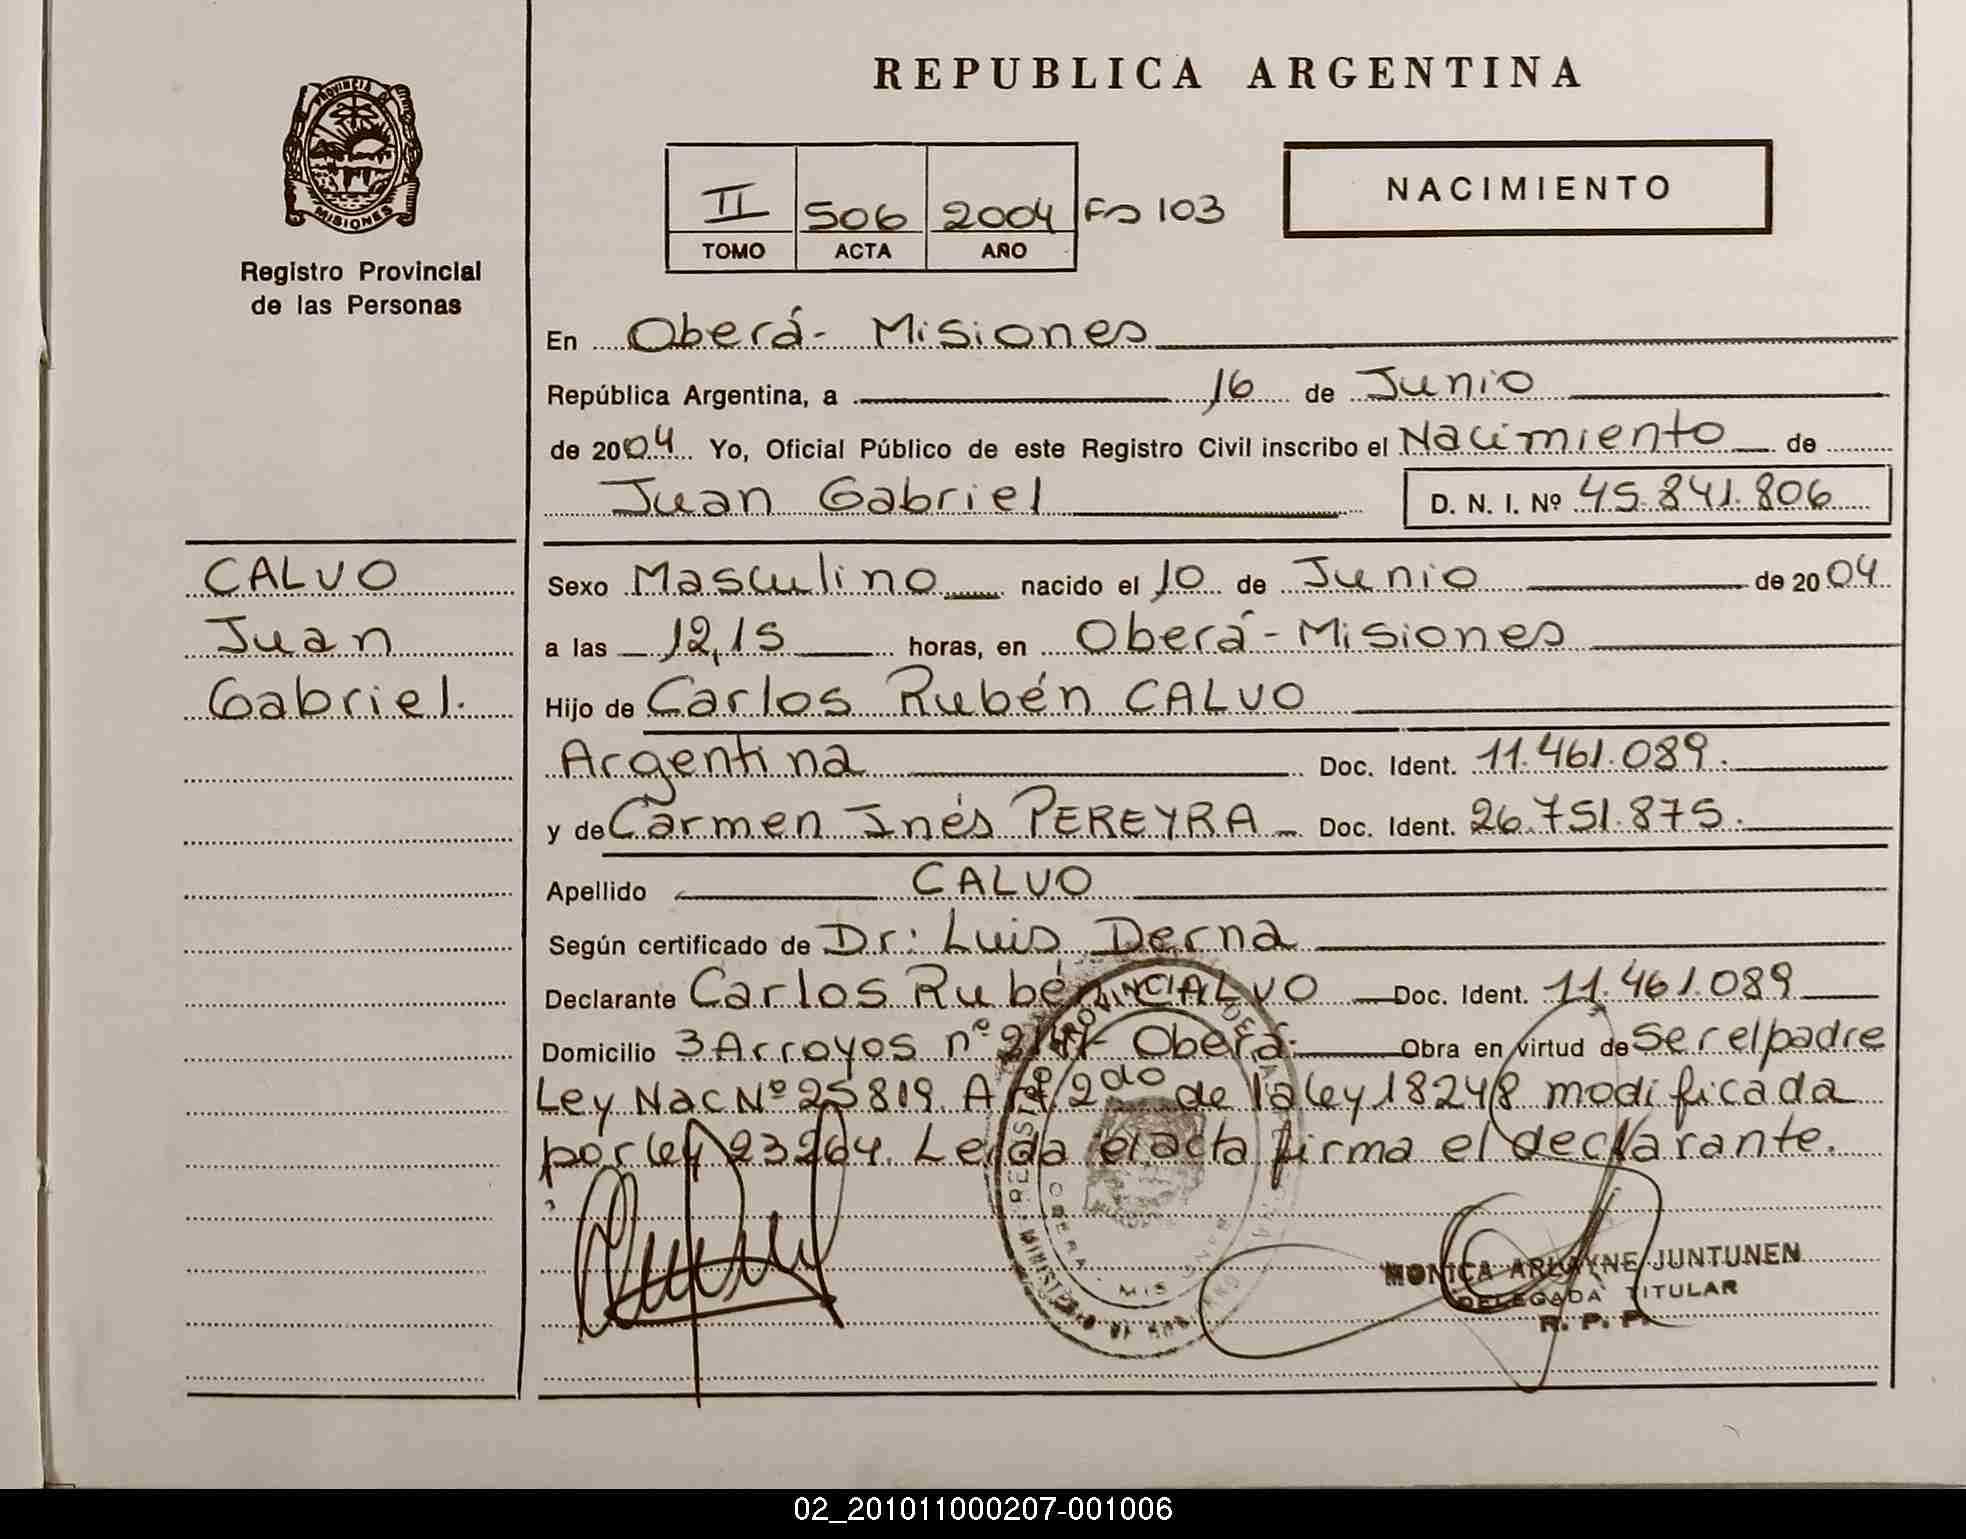 REPUBLICA ARGENTINA
PROVINCIA DE
MISIONES
Registro Provincial
de las Personas
II 506 2004 Fo 103
TOMO ACTA AÑO
NACIMIENTO
En Oberá- Misiones
República Argentina, a 16 de Junio
de 2004 Yo, Oficial Público de este Registro Civil inscribo el Nacimiento de
Juan Gabriel D. N. I. Nº 45.841.806
CALVO
Juan
Gabriel.
Sexo Masculino nacido el 10 de Junio de 2004
a las 12,15 horas, en Oberá-Misiones
Hijo de Carlos Rubén CALVO
Argentina Doc. Ident. 11.461.089.
y de Carmen Inés PEREYRA Doc. Ident. 26.751.875.
Apellido CALVO
Según certificado de Dr. Luis Derna
Declarante Carlos Rubén CALVO Doc. Ident. 11.461.089
Domicilio 3 Arroyos nº Oberá. Obra en virtud de Ser el padre
Ley Nac Nº 25819 Art 2do de la ley 18248 modificada
por ley 23264. Leída el acta firma el declarante.
MONICA ARLAYNE JUNTUNEN
DELEGADA TITULAR
R. P. P.
02_201011000207-001006